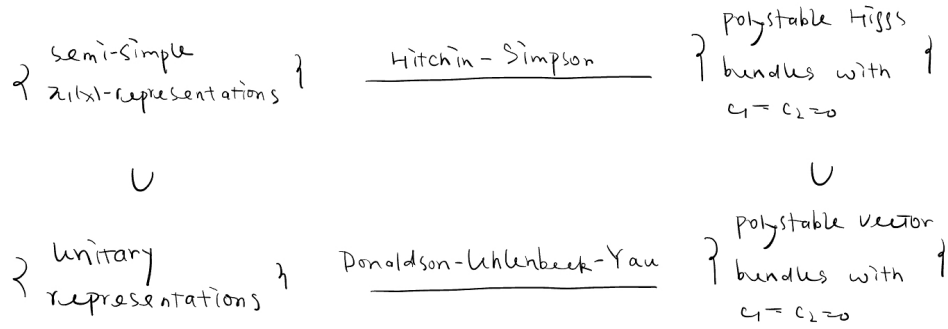 { semi-simple π₁(x)-representations } Hitchin - Simpson { polystable Higgs bundles with c₁ = c₂ = 0 }
∪ ∪
{ unitary representations } Donaldson-Uhlenbeck-Yau { polystable vector bundles with c₁ = c₂ = 0 }